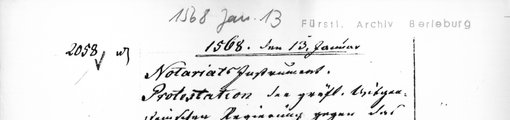 1568 Jan. 13
Fürstl. Archiv Berleburg
2058 1568. den 13. Januar
Notariats Instrument.
Protestation der gräfl. Witgen-
steinschen Regierung gegen das